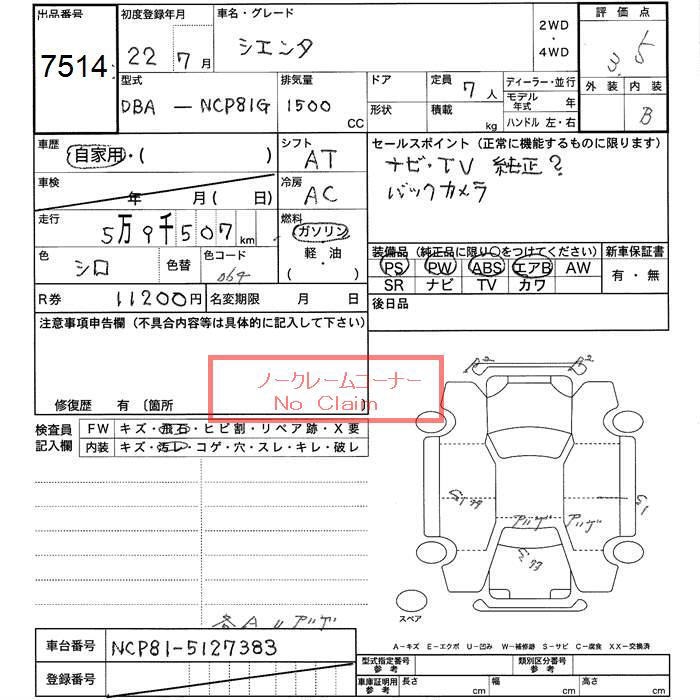 出品番号
7514
初度登録年月
22 7月
車名・グレード
シエンタ
2WD
・
4WD
評価点
3.5
外装 内装
B
型式
DBA — NCP81G
排気量
1500 CC
ドア
形状
定員 7人
積載 kg
ディーラー・並行
モデル年式 年
ハンドル 左・右
車歴
自家用・( )
シフト
AT
車検
年 月( 日)
冷房
AC
走行
5万9千507km
燃料
ガソリン
・
軽・油
( )
色
シロ
色替
色コード
064
R券 11200円
名変期限 月 日
セールスポイント(正常に機能するものに限ります)
ナビ・TV 純正?
バックカメラ
装備品(純正品に限り○をつけてください)
PS PW ABS エアB AW
SR ナビ TV カワ
新車保証書
有・無
後日品
注意事項申告欄(不具合内容等は具体的に記入して下さい)
ノークレームコーナー
No Claim
修復歴 有〔箇所 〕
検査員記入欄
FW キズ・飛石・ヒビ割・リペア跡・X要
内装 キズ・汚レ・コゲ・穴・スレ・キレ・破レ
R2 R2
S1 S1
スペア
車台番号 NCP81-5127383
登録番号
A-キズ E-エクボ U-凹み W-補修跡 S-サビ C-腐食 XX-交換済
型式指定番号 参考
類別区分番号 参考
車庫証明用 参考
長さ cm 幅 cm 高さ cm